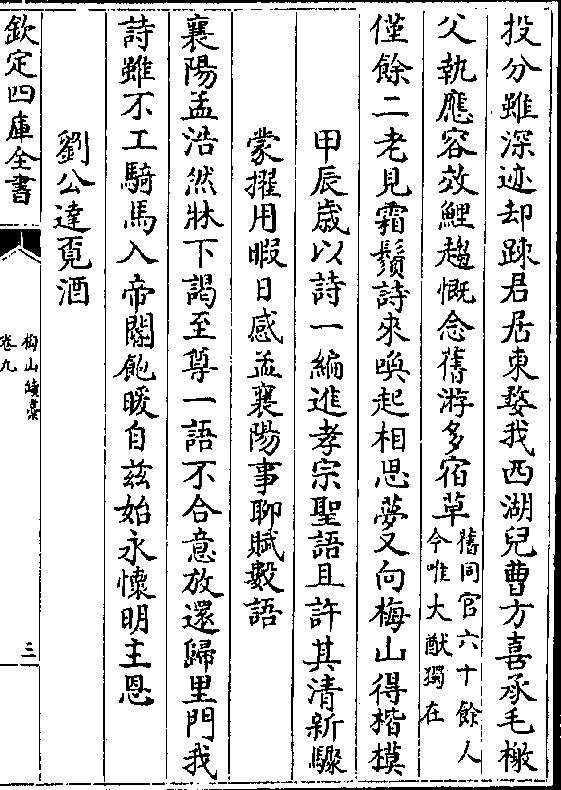 投分雖深迹却踈君居東婺我西湖兒曹方喜承毛檄
父執應容效鯉趨慨念舊游多宿草舊同官六十餘人今唯大猷獨在
僅餘二老見霜鬚詩來喚起相思夢又向梅山得楷模
甲辰歲以詩一編進孝宗聖語且許其清新驟
蒙擢用暇日感孟襄陽事聊賦數語
襄陽孟浩然牀下謁至尊一語不合意放還歸里門我
詩雖不工騎馬入帝閽飽暖自兹始永懷明主恩
劉公達覔酒
欽定四庫全書
梅山續藁
卷九
三